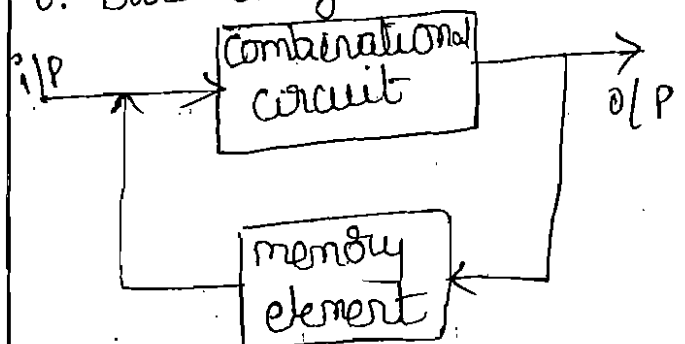 combinational
i/P
circuit
o/P
memory
element